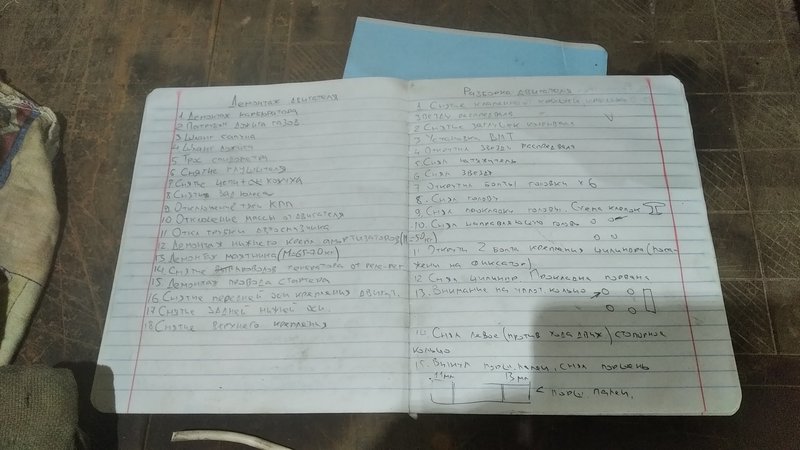 Демонтаж двигателя
1 Демонтаж карбюратора
2 Патрубки дожига газов
3 Шланг сапуна
4 Шланг дожига
5 Трос спидометра
6 Снятие глушителя
7 Снятие цепи + кожуха
8 Снятие зад колеса
9 Отключение тяги КПП
10 Отключение массы от двигателя
11 Откл трубки автосмазчика
12 Демонтаж нижнего крепл амортизаторов
13 Демонтаж маятника
14 Снятие проводов генератора от реле-рег
15 Демонтаж провода стартера
16 Снятие передней оси крепления двигат.
17 Снятие задней нижней оси
18 Снятие верхнего крепления
Разборка двигателя
1 Снятие крышки
звезды распредвала
2 Снятие заглушек
3 Установка ВМТ
4 Открутил звезду распредвал
5 Снял натяжитель
6 Снял звезду
7 Открутил болты головки х6
8. Снял голову
9. Снял прокладку головы. Схема
10. Снял направляющую головы
11 Открутил 2 болта крепления цилиндра (поса-
жены на фиксатор)
12. Снял цилиндр. Прокладка порвана
13. Внимание на уплот. кольцо
14. Снял левое (против хода движ) стопорное
кольцо
15. Вынул порш. палец, снял поршень
11мм 13мм
порш. палец.